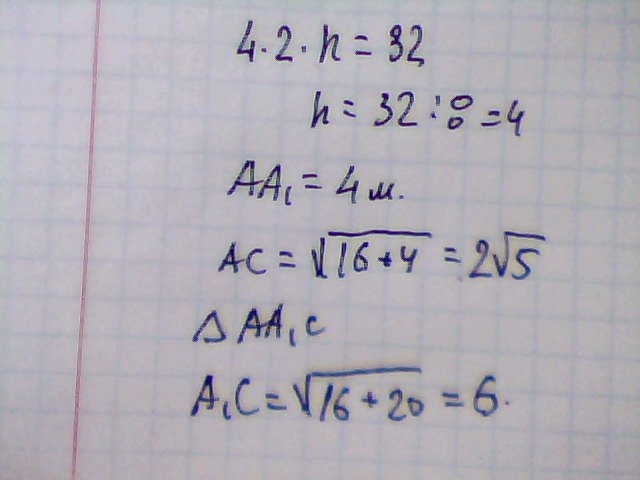 4·2·h = 32
h = 32 : 8 = 4
AA₁ = 4 м.
AC = √(16+4) = 2√5
Δ AA₁C
A₁C = √(16+20) = 6.